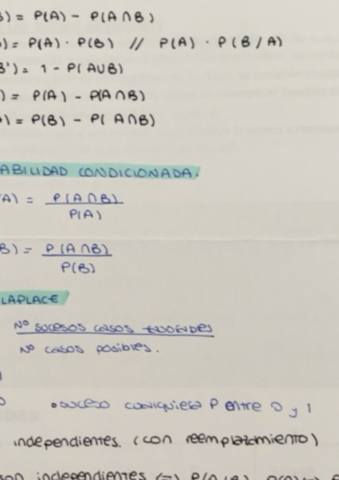 ) = P(A) - P(A∩B)
) = P(A) · P(B) // P(A) · P(B/A)
B') = 1 - P(A∪B)
) = P(A) - P(A∩B)
) = P(B) - P(A∩B)
ABILIDAD CONDICIONADA.
A) = P(A∩B)
P(A)
B) = P(A∩B)
P(B)
LAPLACE
Nº sucesos casos
Nº casos posibles.
• suceso cualquiera P entre 0 y 1
independientes. (con reemplazamiento)
son independientes